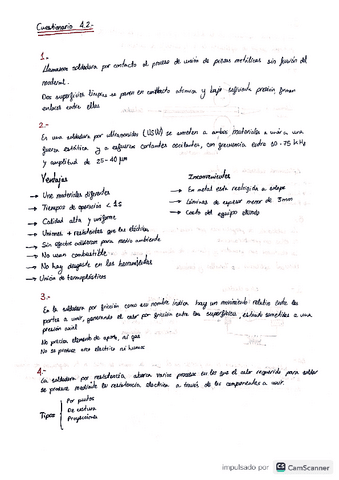 Cuestionario 4.2.-
1.-
Llamamos soldadura por contacto al proceso de unión de piezas metálicas sin fusión del
material.
Dos superficies limpias se ponen en contacto atómico y bajo suficiente presión forman
enlaces entre ellas
2.-
En una soldadura por ultrasonidos (USW) se someten a ambos materiales a unir a una
fuerza estática y a esfuerzos cortantes oscilantes, con frecuencia entre 10-75 kHz
y amplitud de 25-40 μm
Ventajas
→ Une materiales diferentes
→ Tiempos de operación < 1s
→ Calidad alta y uniforme
→ Uniones + resistentes que las
→ Sin efectos para medio ambiente
→ No usan combustible
→ No hay desgaste en las herramientas
→ Unión de termoplásticos
Inconvenientes
→ En metal está restringida a solape
→ Láminas de espesor menor de 3mm
→ Costo del equipo elevado
3.-
En la soldadura por fricción como su nombre indica hay un movimiento relativo entre las
partes a unir, generando el calor por fricción entre las superficies, estando sometidas a una
presión axial
No precisa elemento de aporte, ni gas
No se produce arco eléctrico ni humos
4.-
La soldadura por resistencia, abarca varios procesos en los que el calor requerido para soldar
se produce mediante la resistencia eléctrica a través de los componentes a unir.
Tipos
Por puntos
De costura
Proyecciones
impulsado por CS CamScanner